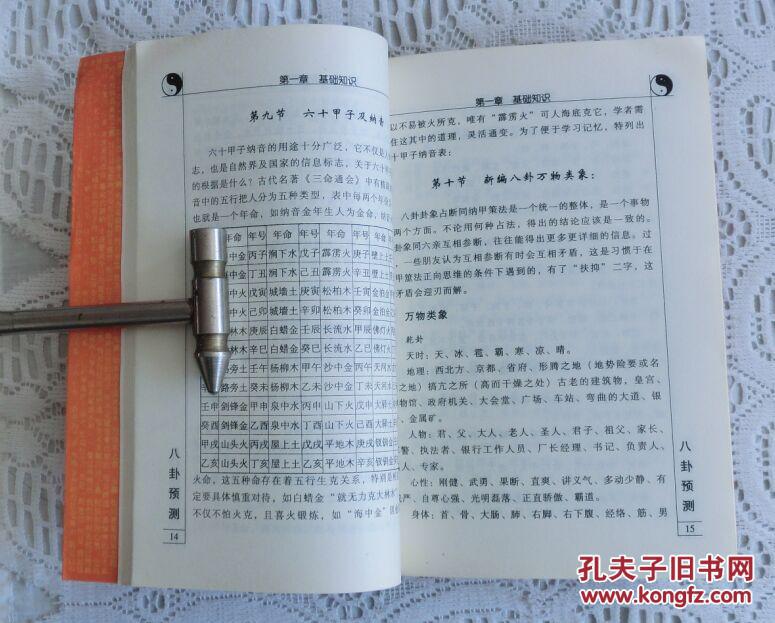 第一章 基础知识
第九节 六十甲子及纳音
六十甲子纳音的用途十分广泛，它不仅是人
志，也是自然界及国家的信息标志，关于六十
的根据是什么？古代名著《三命通会》中有精
音中的五行把人分为五种类型，表中每两个年
也就是一个年命，如纳音金年生人为金命，
年命 年号 年命 年号 年命 年号 年命
中金 丙子 涧下水 戊子 霹雳火 庚子 壁上土
中金 丁丑 涧下水 己丑 霹雳火 辛丑 壁上土
中火 戊寅 城墙土 庚寅 松柏木 壬寅 金
中火 己卯 城墙土 辛卯 松柏木 癸卯 金
林木 庚辰 白蜡金 壬辰 长流水 甲辰 佛灯火
林木 辛巳 白蜡金 癸巳 长流水 乙巳 佛灯火
路旁土 壬午 杨柳木 甲午 沙中金 丙午 天河水
路旁土 癸未 杨柳木 乙未 沙中金 丁未 天河水
壬申 剑锋金 甲申 泉中水 丙申 山下火 戊申 大驿土
癸酉 剑锋金 乙酉 泉中水 丁酉 山下火 己酉 大驿土
甲戌 山头火 丙戌 屋上土 戊戌 平地木 庚戌 钗钏金
乙亥 山头火 丁亥 屋上土 己亥 平地木 辛亥 钗钏金
火命，这五种命存在着五行生克关系，特别是
定要具体慎重对待，如白蜡金"就无力克大林
不仅不怕火克，且喜火锻炼，如"海中金"
八卦预测
14
第一章 基础知识
以不易被火所克，唯有"霹雳火"可人海底克它，学者需
住这其中的道理，灵活通变。为了便于学习记忆，特列出
十甲子纳音表：
第十节 新编八卦万物类象：
八卦卦象占断同纳甲策法是一个统一的整体，是一个事物
两个方面。不论用何种占法，得出的结论应该是一致的。
卦象同六亲互相参断，往往能得出更多更详细的信息。过
，一些朋友认为互相参断有时会互相矛盾，这是习惯于在
甲筮法正向思维的条件下遇到的，有了"扶抑"二字，这
矛盾会迎刃而解。
万物类象
乾卦
天时：天、冰、雹、霸、寒、凉、晴。
地理：西北方、京都、省府、形腾之地（地势险要或名
之地）搞亢之所（高而干燥之处）古老的建筑物，皇宫、
物馆、政府机关、大会堂、广场、车站、弯曲的大道、银
、金属矿。
人物：君、父、大人、老人、圣人、君子、祖父、家长、
警、执法者、银行工作人员、厂长经理、书记、负责人、
人、专家。
心性：刚健、武勇、果断、直爽、讲义气、多动少静、有
严、自尊心强、光明磊落、正直骄傲、霸道。
身体：首、骨、大肠、肺、右脚、右下腹、经络、筋、男
八卦预测
15
孔夫子旧书网
www.kongfz.com